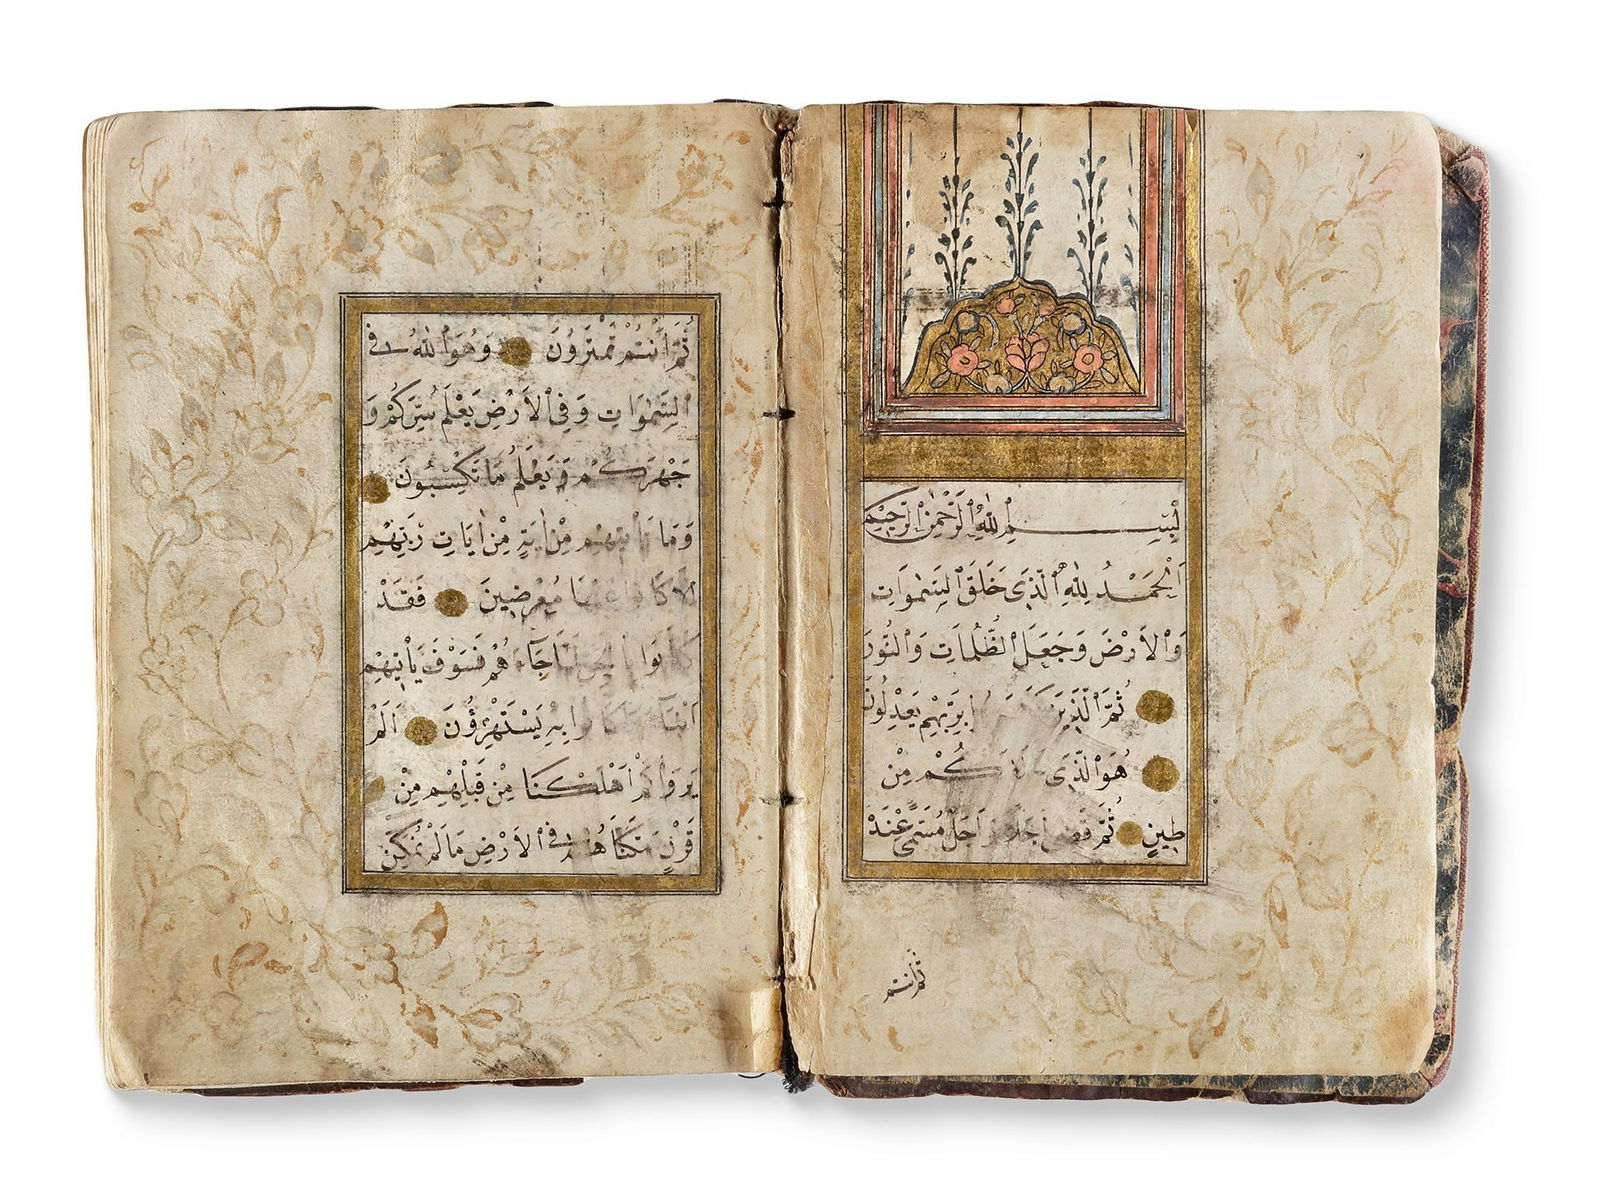 بِسْمِ اللّٰهِ الرَّحْمٰنِ الرَّحِيمِ
اَلْحَمْدُ لِلّٰهِ الَّذِى خَلَقَ السَّمٰوَاتِ
وَالْاَرْضَ وَجَعَلَ الظُّلُمَاتِ وَالنُّورَ
ثُمَّ الَّذِينَ كَفَرُوا بِرَبِّهِمْ يَعْدِلُونَ
هُوَ الَّذِى خَلَقَكُمْ مِنْ
طِينٍ ثُمَّ قَضٰى اَجَلًا وَاَجَلٌ مُسَمًّى عِنْدَهُ
ثم انتم
ثُمَّ اَنْتُمْ تَمْتَرُونَ وَهُوَ اللّٰهُ فِى
السَّمٰوَاتِ وَفِى الْاَرْضِ يَعْلَمُ سِرَّكُمْ وَ
جَهْرَكُمْ وَيَعْلَمُ مَا تَكْسِبُونَ
وَمَا تَاْتِيهِمْ مِنْ اٰيَةٍ مِنْ اٰيَاتِ رَبِّهِمْ
اِلَّا كَانُوا عَنْهَا مُعْرِضِينَ فَقَدْ
كَذَّبُوا بِالْحَقِّ لَمَّا جَاۤءَهُمْ فَسَوْفَ يَاْتِيهِمْ
اَنْبٰۤؤُا مَا كَانُوا بِهِ يَسْتَهْزِؤُنَ اَلَمْ
يَرَوْا كَمْ اَهْلَكْنَا مِنْ قَبْلِهِمْ مِنْ
قَرْنٍ مَكَّنَّاهُمْ فِى الْاَرْضِ مَا لَمْ نُمَكِّنْ